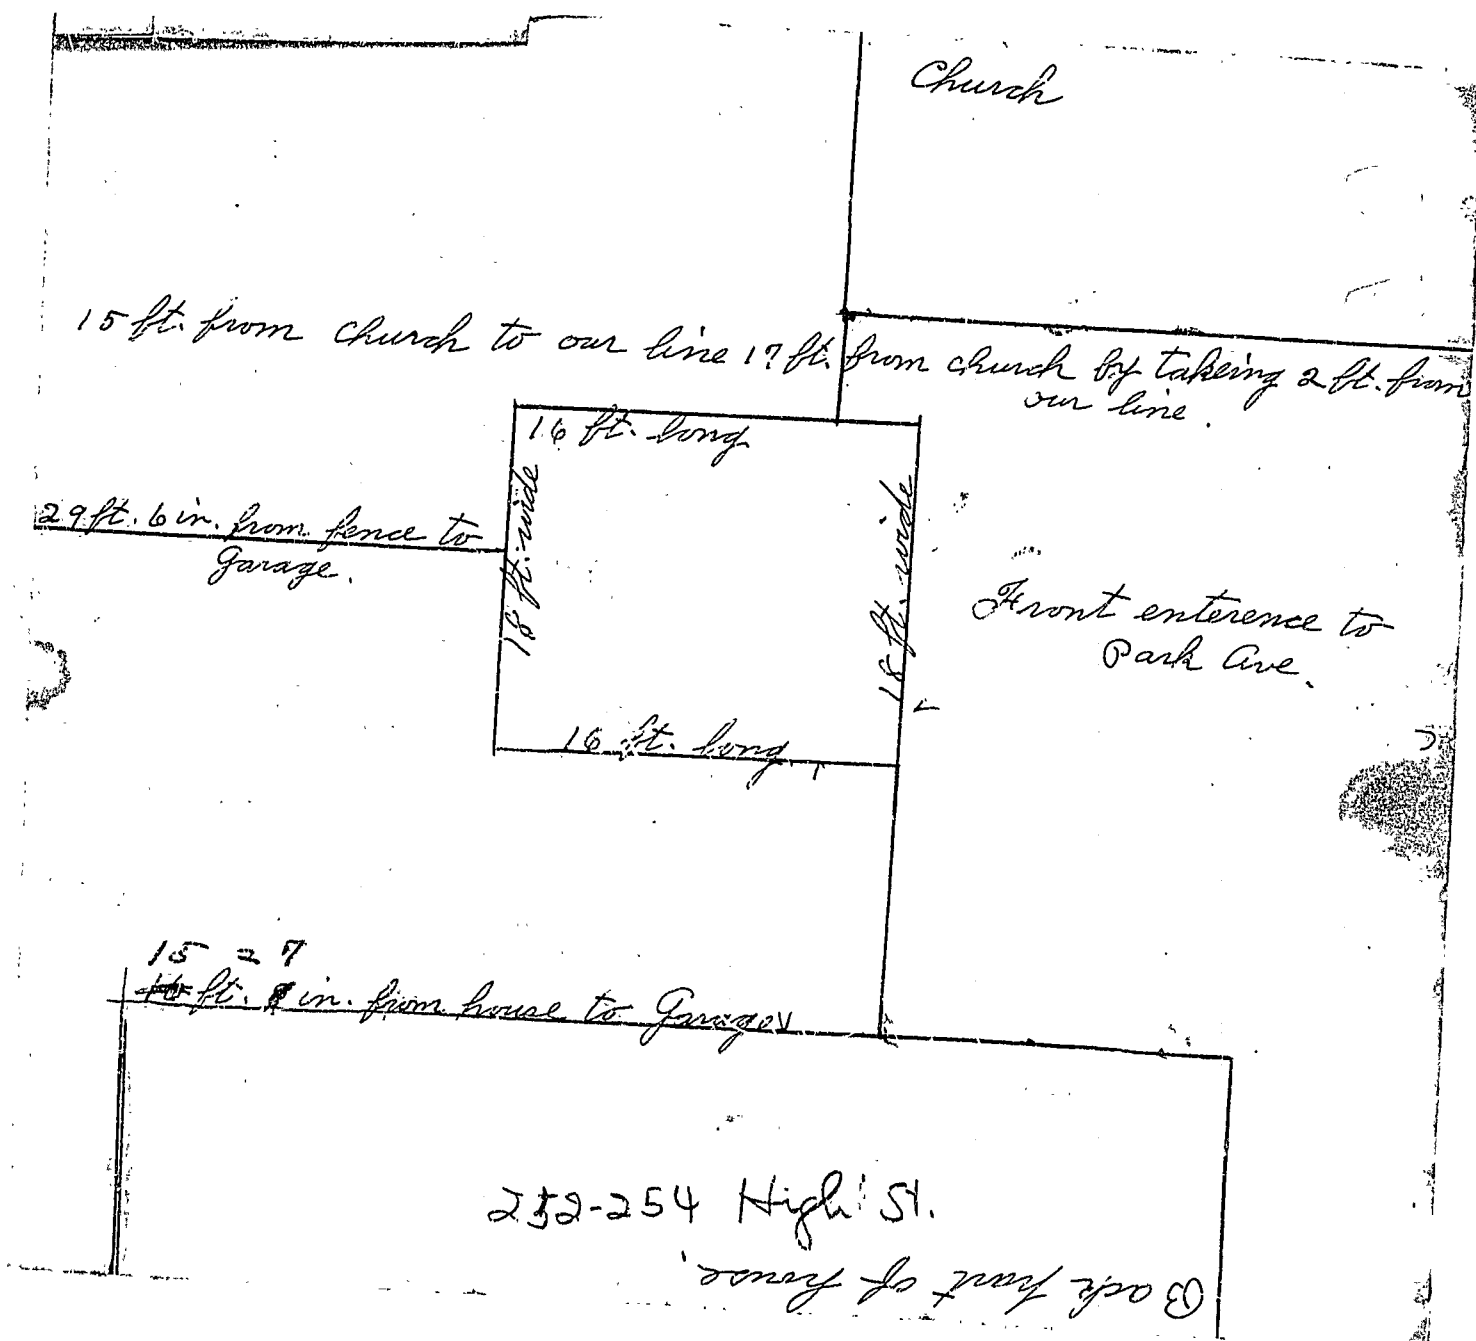 Church
15 ft. from church to our line 17 ft. from church by takeing 2 ft. from
our line.
16 ft. long
18 ft. wide
18 ft. wide
29 ft. 6 in. from fence to
Garage.
Front enterence to
Park Ave.
16 ft. long
15 = 7
ft. in. from house to Garage
252-254 High St.
Back part of house.